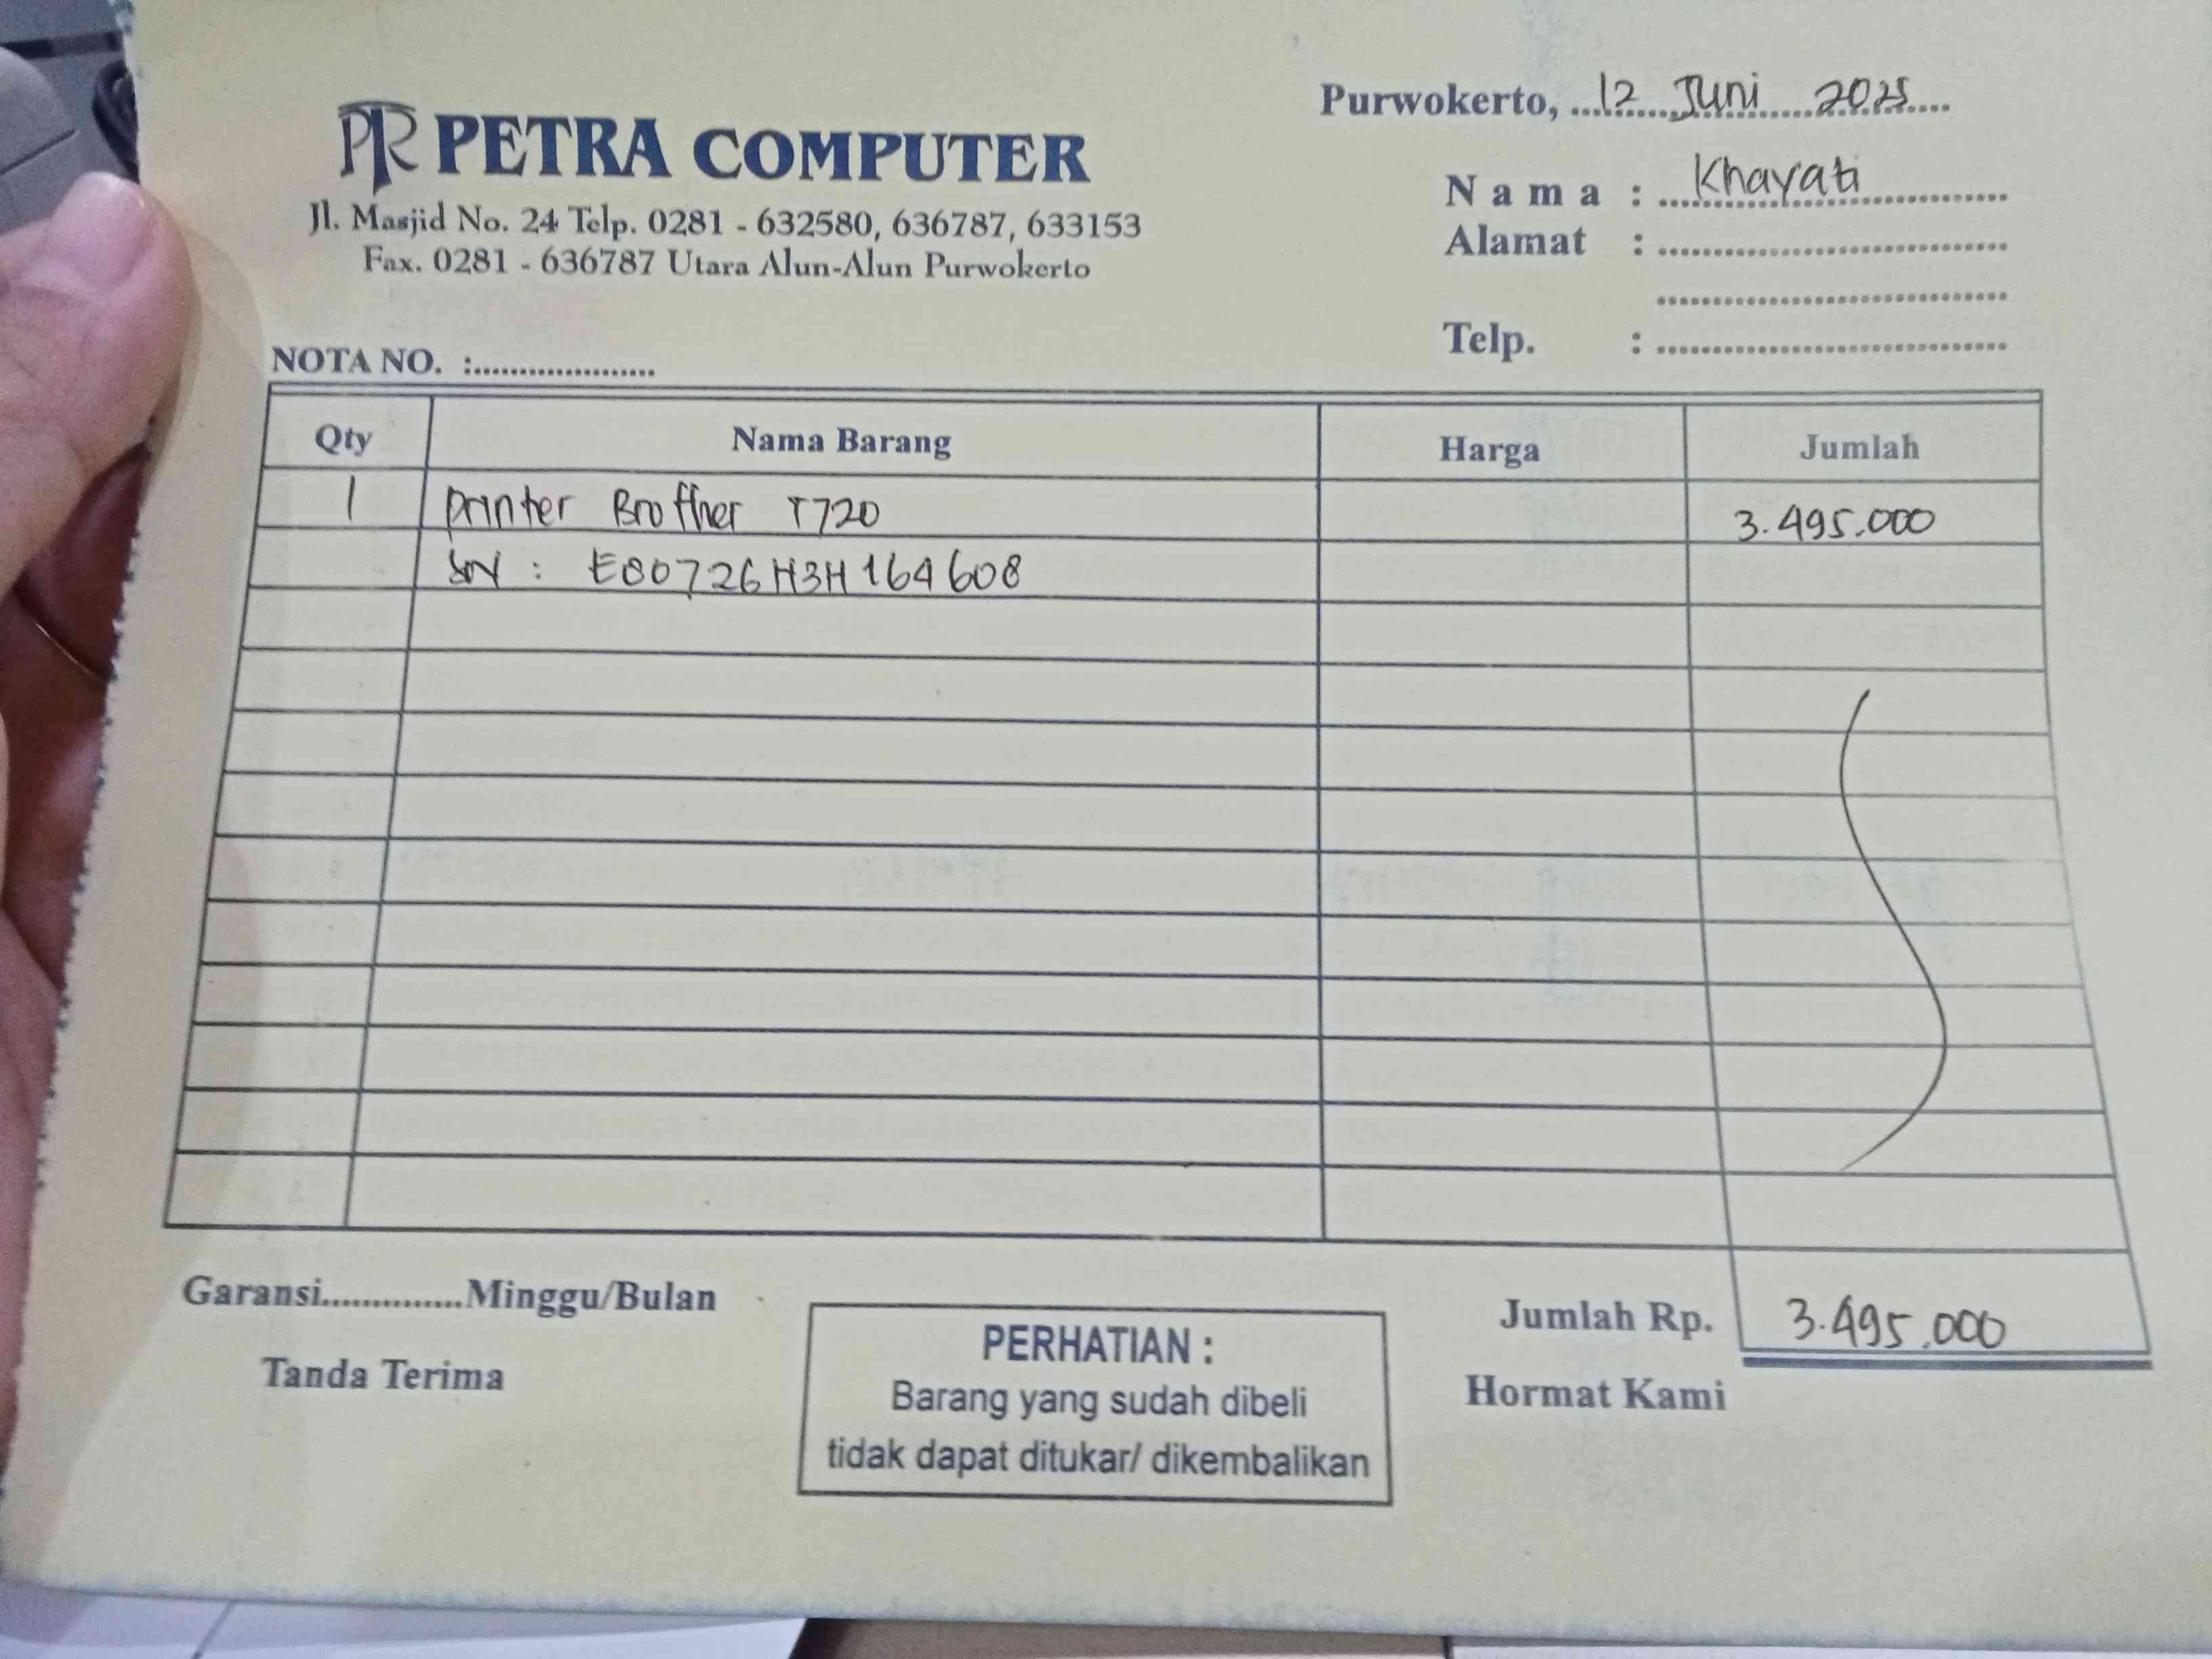 PR PETRA COMPUTER
Jl. Masjid No. 24 Telp. 0281 - 632580, 636787, 633153
Fax. 0281 - 636787 Utara Alun-Alun Purwokerto
Purwokerto, ....12 Juni 2025....
Nama : Khayati
Alamat :
Telp. :
NOTA NO. :....................
Qty Nama Barang Harga Jumlah
1 Printer Brother T720 3.495.000
SN : E80726H3H164608
Garansi..............Minggu/Bulan
Jumlah Rp. 3.495.000
Tanda Terima
PERHATIAN :
Barang yang sudah dibeli
tidak dapat ditukar/ dikembalikan
Hormat Kami